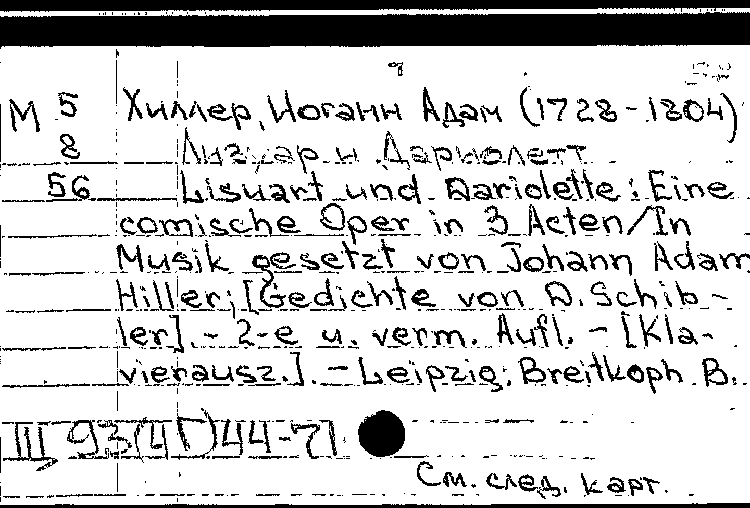 М 5 Хиллер, Иоганн Адам (1728-1804)
8 Лизуар и Дариолетт
56 Lisuart und Dariolette: Eine
comische Oper in 3 Acten/In
Musik gesetzt von Johann Adam
Hiller; [Gedichte von D. Schib-
ler]. - 2-e u. verm. Aufl. - [Kla-
vierausz.]. - Leipzig: Breitkoph B.
Ш 93(4Г)44-71
См. след. карт.